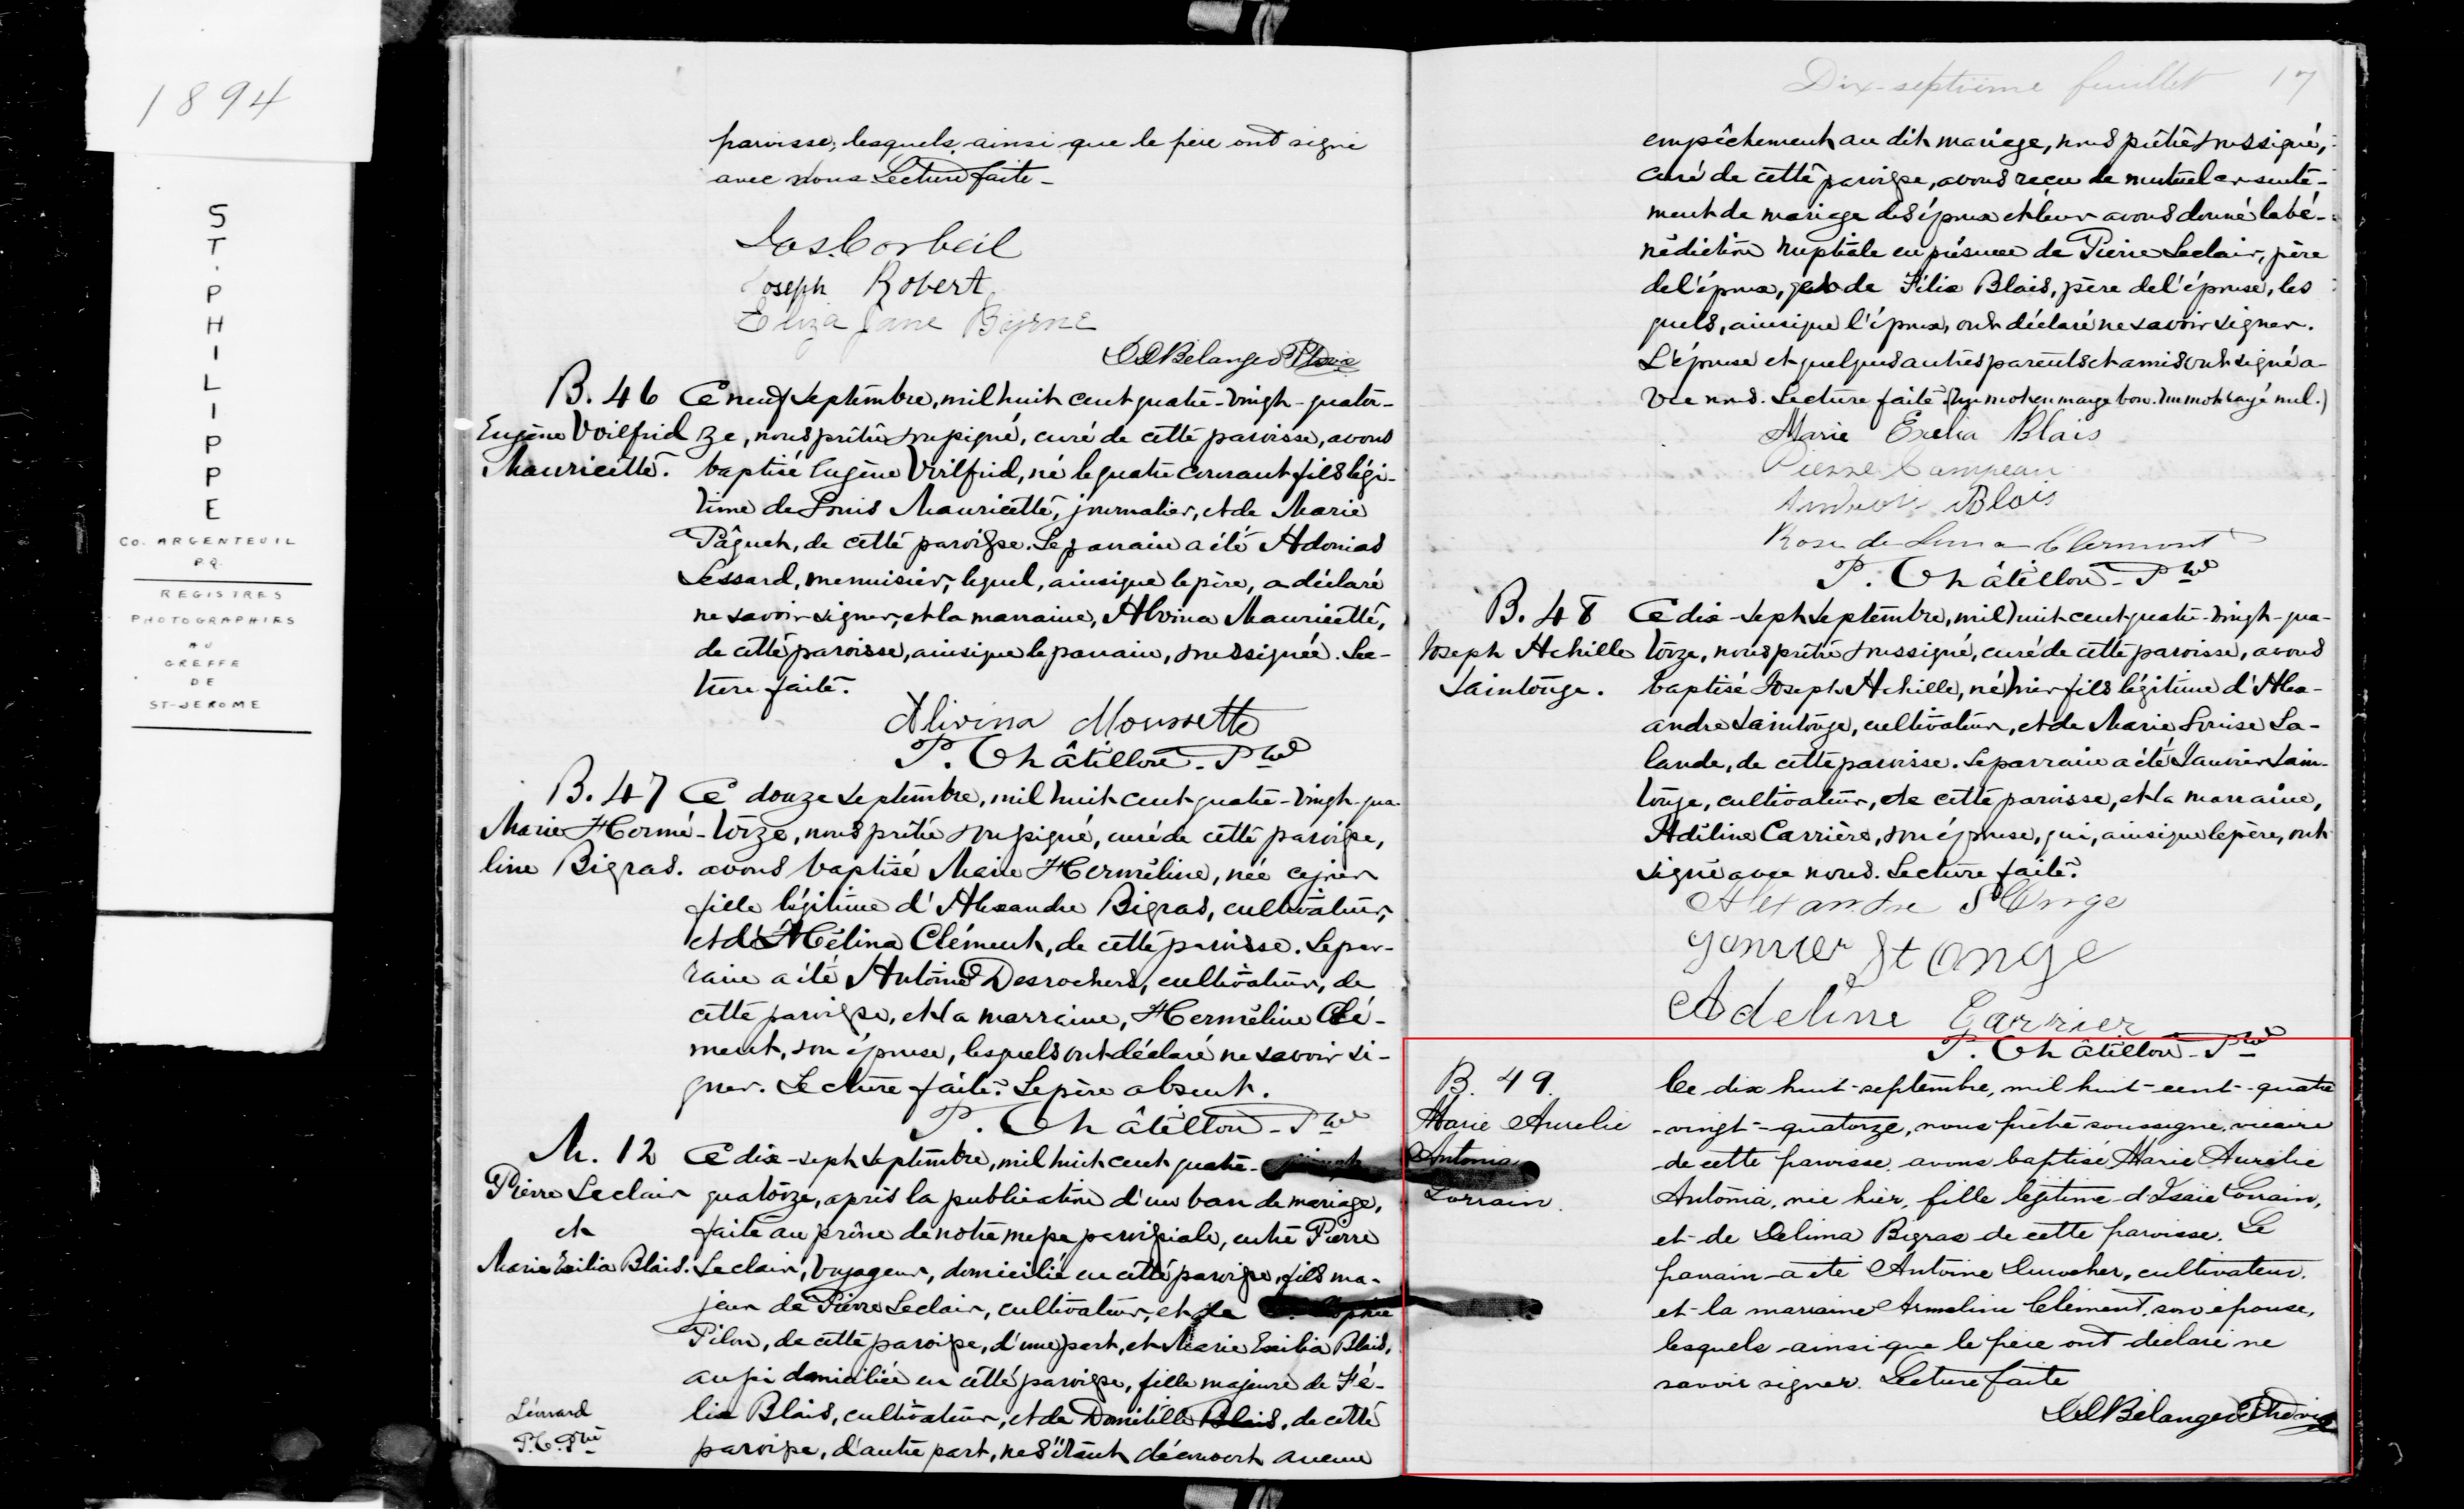 1894
ST. PHILIPPE
CO. ARGENTEUIL
P.Q.
REGISTRES
PHOTOGRAPHIES
AU
GREFFE
DE
ST-JEROME
paroisse, lesquels, ainsi que le père ont signé
avec nous Lecture faite-
Jos. Corbeil
Joseph Robert
Eliza Jane Byrne
Bélanger Ptre vic
B. 46
Eugène Voilfrid
Mauricette.
Ce neuf Septembre, mil huit cent quatre-vingt-quator-
ze, nous prêtre soussigné, curé de cette paroisse, avons
baptisé Eugène Voilfrid, né le quatre courant fils légi-
time de Louis Mauricette, journalier, et de Marie
Pâquet, de cette paroisse. Le parrain a été Adonias
Lessard, menuisier, lequel, ainsi que le père, a déclaré
ne savoir signer, et la marraine, Alvina Mauricette,
de cette paroisse, ainsi que le parrain, soussignée. Lec-
ture faite.
Alivina Moussette
P. Châtillon - Ptre
B. 47
Marie Hermé-
line Bigras.
Ce douze Septembre, mil huit cent quatre-vingt-qua-
torze, nous prêtre soussigné, curé de cette paroisse,
avons baptisé Marie Herméline, née ce jour
fille légitime d'Alexandre Bigras, cultivateur,
et d' Mélina Clément, de cette paroisse. Le par-
rain a été Antoine Desrochers, cultivateur, de
cette paroisse, et la marraine, Herméline Clé-
ment, son épouse, lesquels ont déclaré ne savoir si-
gner. Lecture faite. Le père absent.
P. Châtillon - Ptre
M. 12
Pierre Leclair
et
Marie Exilia Blais.
Ce dix-sept Septembre, mil huit cent quatre-
quatorze, après la publication d'un ban de mariage,
faite au prône de notre messe paroissiale, entre Pierre
Leclair, voyageur, domicilié en cette paroisse, fils ma-
jeur de Pierre Leclair, cultivateur, et de Sophie
Pilon, de cette paroisse, d'une part, et Marie Exilia Blais,
aussi domiciliée en cette paroisse, fille majeure de Fé-
lix Blais, cultivateur, et de Domitille Blais, de cette
paroisse, d'autre part, ne s'étant découvert aucun
Léonard
P.C. Ptre
Dix-septième feuillet 17
empêchement au dit mariage, nous prêtre soussigné,
curé de cette paroisse, avons reçu le mutuel consente-
ment de mariage des époux et leur avons donné la bé-
nédiction nuptiale en présence de Pierre Leclair, père
de l'époux, de Félix Blais, père de l'épouse, les
quels, ainsi que l'époux, ont déclaré ne savoir signer.
L'épouse et quelques autres parents et amis ont signé a-
vec nous. Lecture faite. (Un mot en marge bon. Un mot rayé nul.)
Marie Exelia Blais
Pierre Campeau
Blais
Rose de Lima Clermont
P. Châtillon - Ptre
B. 48
Joseph Achille
Saintonge.
Ce dix-sept Septembre, mil huit cent quatre-vingt-qua-
torze, nous prêtre soussigné, curé de cette paroisse, avons
baptisé Joseph Achille, né hier fils légitime d'Alex-
andre Saintonge, cultivateur, et de Marie Louise La-
lande, de cette paroisse. Le parrain a été Janvier Sain-
tonge, cultivateur, de cette paroisse, et la marraine,
Adéline Carrière, son épouse, qui, ainsi que le père, ont
signé avec nous. Lecture faite.
Alexandre St Onge
Janvier St Onge
Adeline Carrier
P. Châtillon - Ptre
B. 49.
Marie Aurelie
Antonia
Lorrain.
Ce dix huit-septembre, mil huit-cent-quatre
-vingt-quatorze, nous prêtre soussigné, vicaire
de cette paroisse, avons baptisé Marie Aurélie
Antonia, née hier, fille légitime d'Isaïe Lorrain,
et de Delima Bigras de cette paroisse. Le
parrain a été Antoine Durocher, cultivateur,
et la marraine Armeline Clément, son épouse,
lesquels ainsi que le père ont déclaré ne
savoir signer. Lecture faite
Bélanger Ptre vic